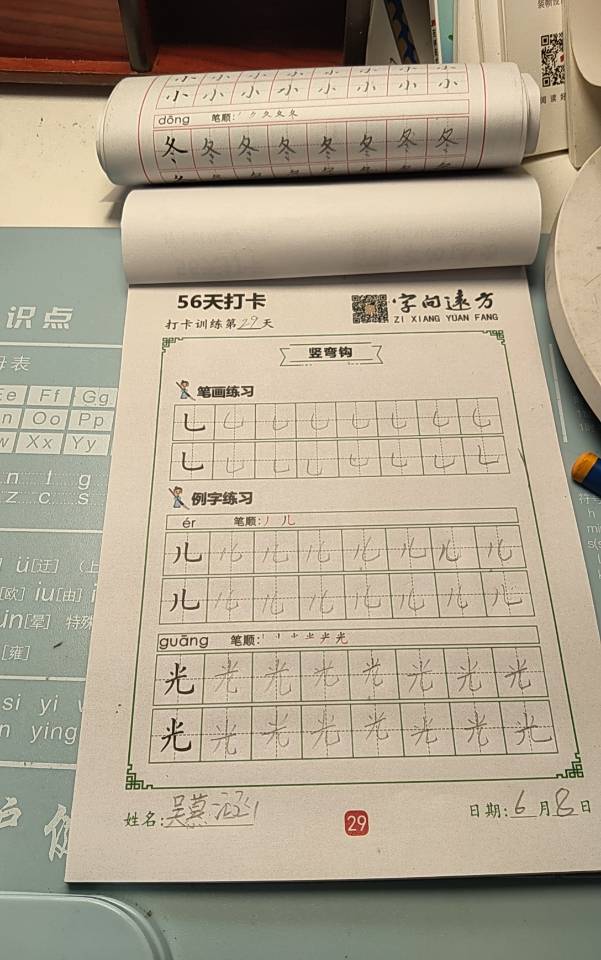 小 小 小 小 小 小 小 小
dōng 笔顺:
冬 冬 冬 冬 冬 冬 冬 冬
阅 读 好
识点
母表
Ee Ff Gg
Oo Pp
Xx Yy
56天打卡
打卡训练第29天
字间速方
ZI XIANG YUAN FANG
竖弯钩
笔画练习
乚 乚 乚 乚 乚 乚 乚 乚
乚 乚 乚 乚 乚 乚 乚 乚
例字练习
ér 笔顺: 丿 儿
儿 儿 儿 儿 儿 儿 儿 儿
儿 儿 儿 儿 儿 儿 儿 儿
guāng 笔顺:
光 光 光 光 光 光 光 光
光 光 光 光 光 光 光 光
z c s
ü[迂]
[欧] iu[由]
ün[晕] 特殊
[雍]
si yi
ying
姓名:吴慕涵
29
日期:6月8日